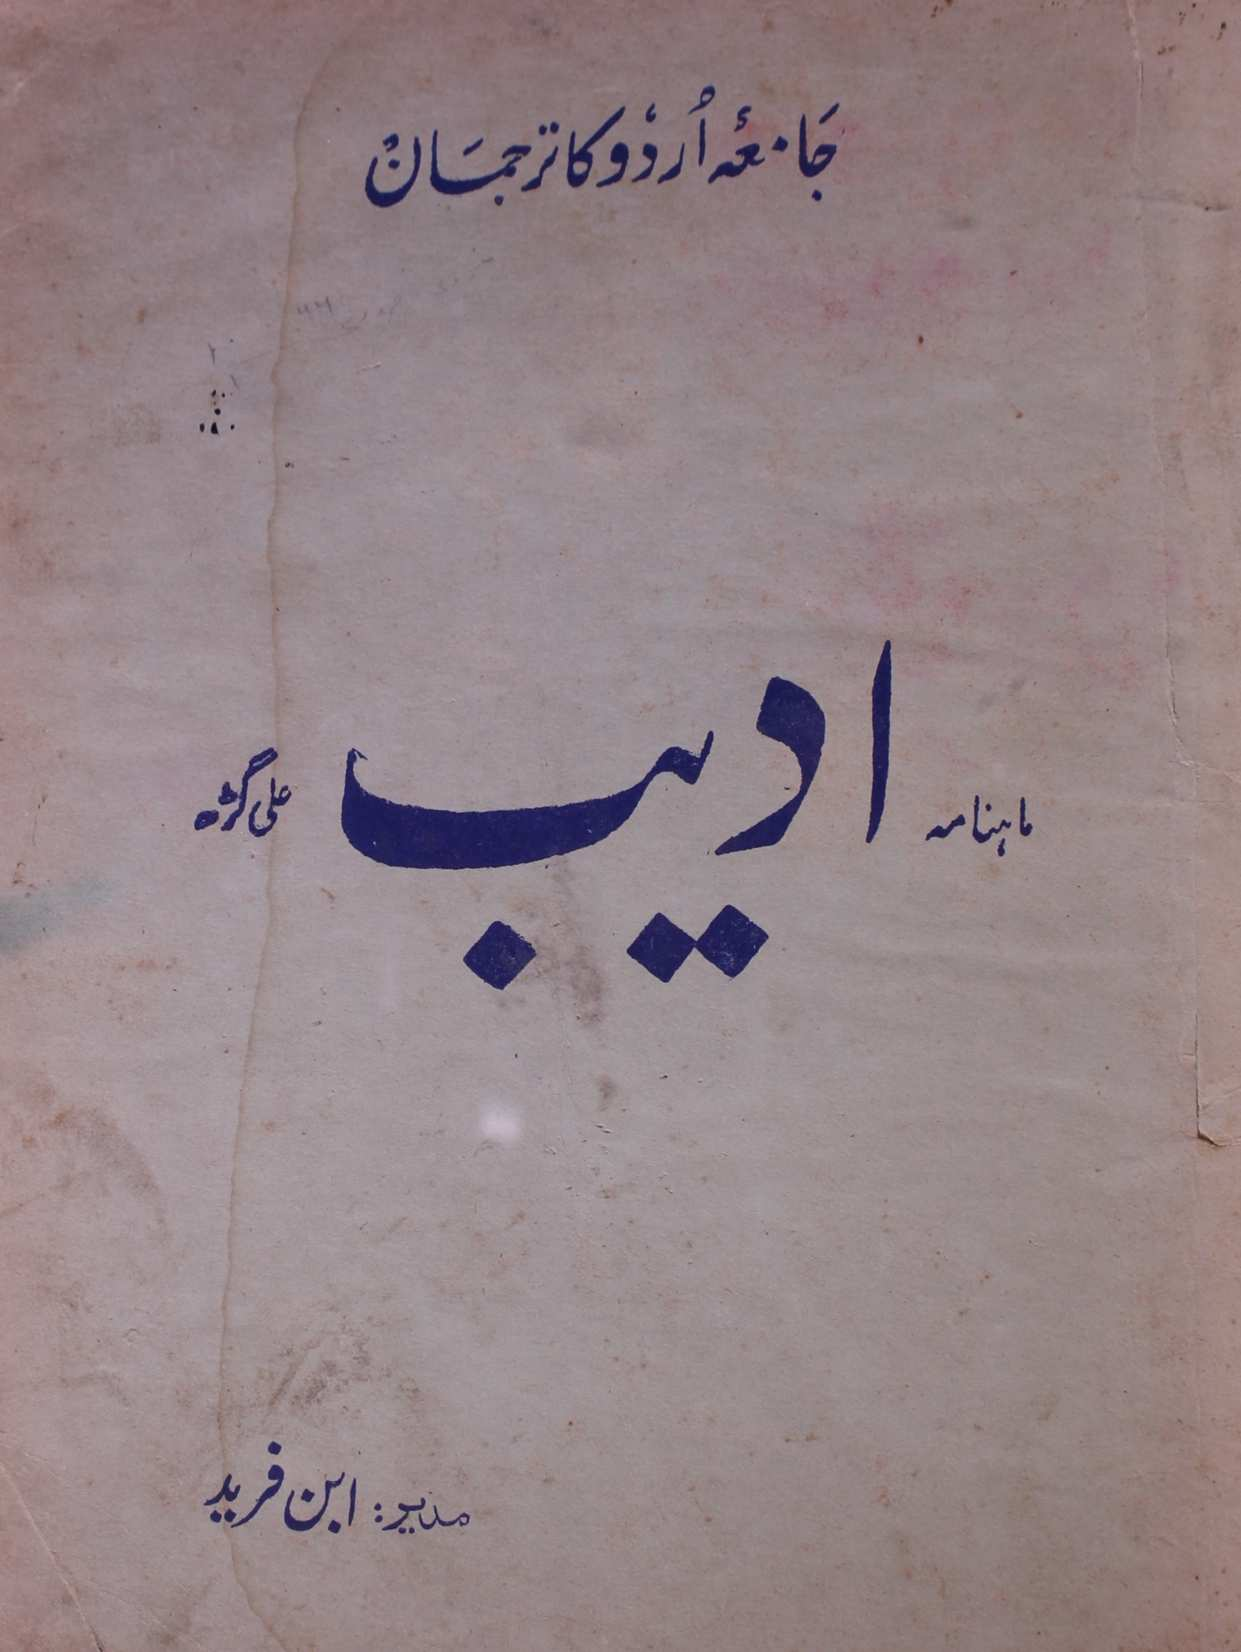 جامعۂ اُردو کا ترجمان
ماہنامہ ادیب علی گڑھ
مدیر: ابن فرید